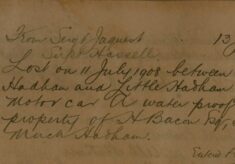 From Sergt Jaquest 13
Supt Hassell
Lost on 11 July 1908 between
Hadham and Little Hadham
Motor car A water proof
property of A Bacon Esq,
Much Hadham.